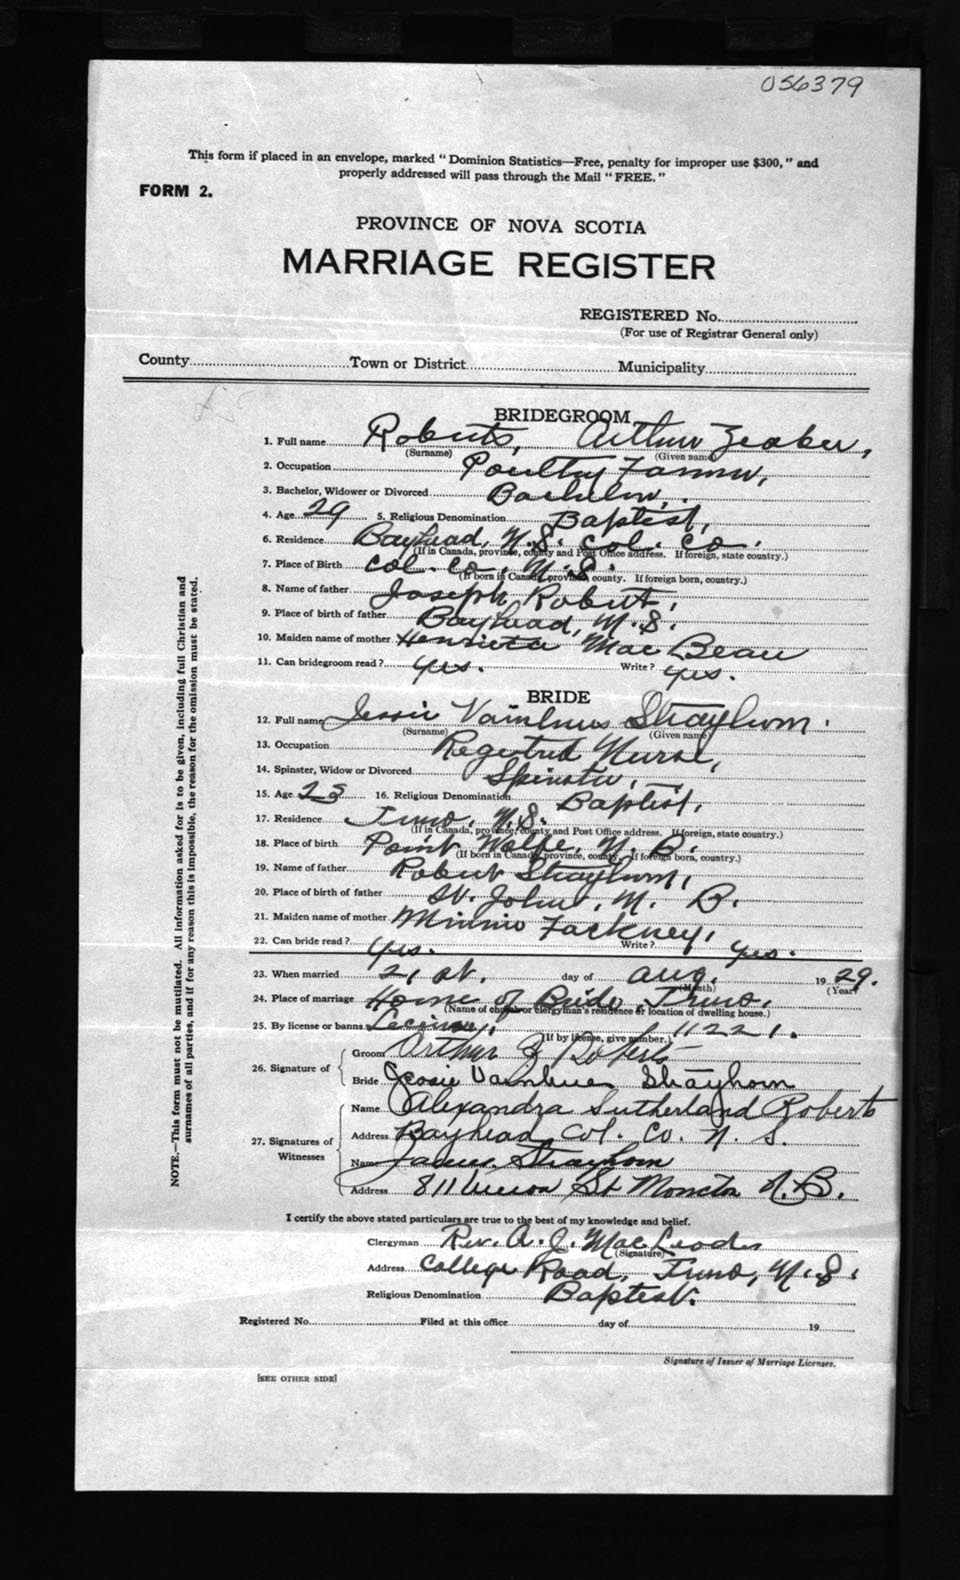 056379
This form if placed in an envelope, marked "Dominion Statistics—Free, penalty for improper use $300," and
properly addressed will pass through the Mail "FREE."
FORM 2.
PROVINCE OF NOVA SCOTIA
MARRIAGE REGISTER
REGISTERED No.
(For use of Registrar General only)
County Town or District Municipality
BRIDEGROOM
1. Full name Roberts, Arthur,
(Surname) (Given name)
2. Occupation Poultry Farmer,
3. Bachelor, Widower or Divorced Bachelor,
4. Age 29 5. Religious Denomination Baptist,
6. Residence Bayhead, N.S. Col. Co.
(If in Canada, province, county and Post Office address. If foreign, state country.)
7. Place of Birth Col. Co., N.S.
(If born in Canada, province, county. If foreign born, country.)
8. Name of father Joseph Robert,
9. Place of birth of father Bayhead, N.S.
10. Maiden name of mother Henrietta Mac Bean
11. Can bridegroom read? yes. Write? yes.
BRIDE
12. Full name Jessie Strayhorn.
(Surname) (Given name)
13. Occupation Registrd Nurse,
14. Spinster, Widow or Divorced Spinster,
15. Age 16. Religious Denomination Baptist,
17. Residence Truro, N.S.
(If in Canada, province, county and Post Office address. If foreign, state country.)
18. Place of birth Point Wolfe, N. B.
(If born in Canada, province, county. If foreign born, country.)
19. Name of father Robert Strayhorn,
20. Place of birth of father St. John, N. B.
21. Maiden name of mother Minnie Fackney,
22. Can bride read? yes. Write? yes.
23. When married 21 st. day of Aug. 19 29.
(Month) (Year)
24. Place of marriage Home of Bride, Truro,
(Name of church or clergyman's residence or location of dwelling house.)
25. By license or banns 11221.
(If by license, give number.)
26. Signature of Groom Arthur Z Roberts
Bride Jessie Strayhorn
Name Alexandra Sutherland Roberts
27. Signatures of Witnesses Address Bayhead Col. Co. N. S.
Name James Strayhorn
Address St Moncton N.B.
I certify the above stated particulars are true to the best of my knowledge and belief.
Clergyman Rev. A. J. MacLeod
(Signature)
Address College Road, Truro, N.S.
Religious Denomination Baptist.
Registered No. Filed at this office day of 19
Signature of Issuer of Marriage Licenses.
[SEE OTHER SIDE]
NOTE.—This form must not be mutilated. All information asked for is to be given, including full Christian and
surnames of all parties, and if for any reason this is impossible, the reason for the omission must be stated.